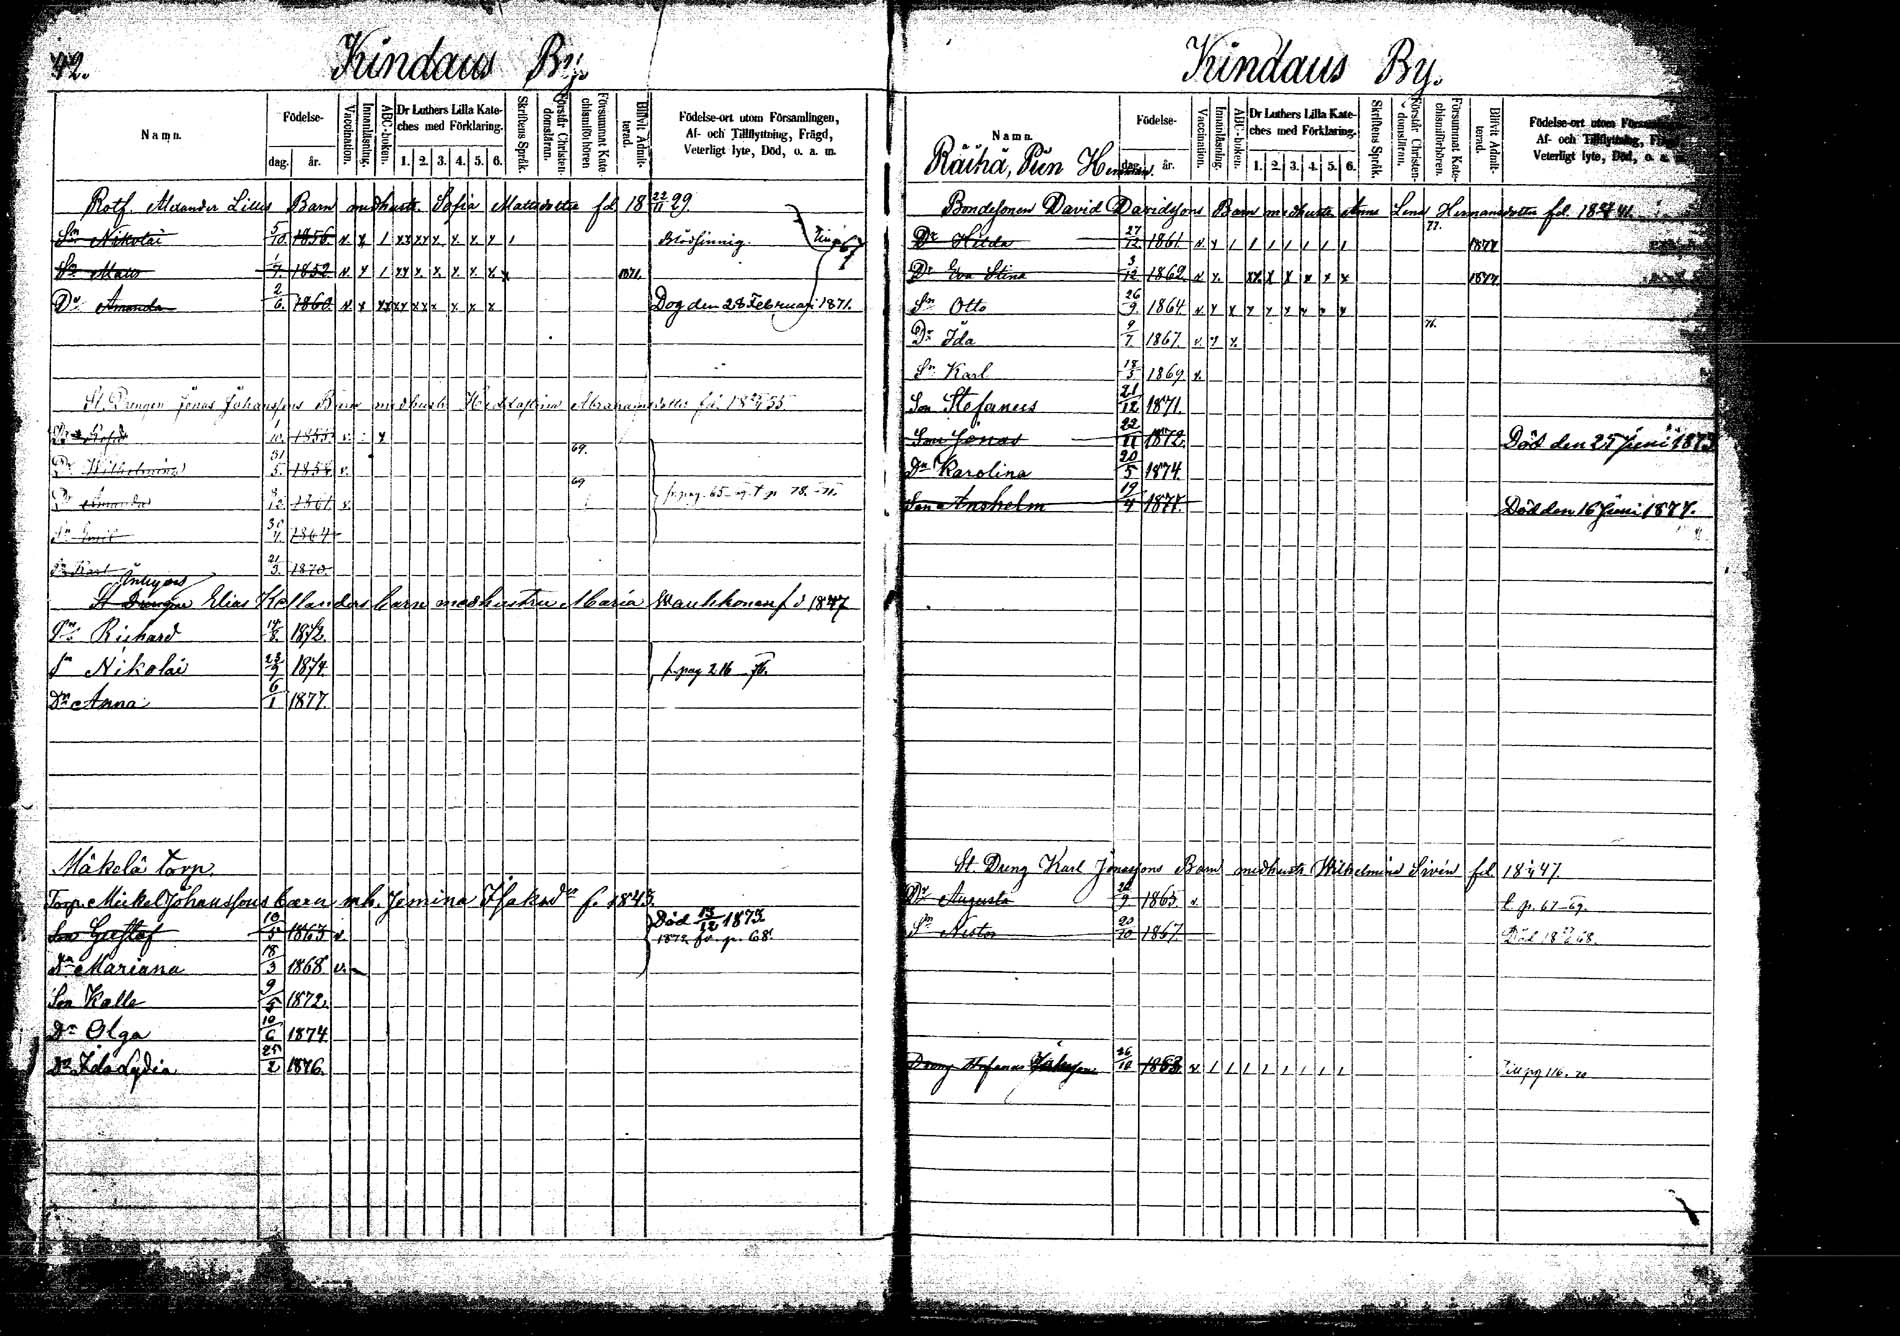 42.
Kindaus By.
Namn.
Födelse-
dag. år.
Vaccination.
Innanläsning.
ABC-boken.
Dr Luthers Lilla Kateches med Förklaring.
1. 2. 3. 4. 5. 6.
Skriftens Språk.
Förstår Christendomsläran.
Försummat Katechismiförhören
Blifvit Admitterad.
Födelse-ort utom Församlingen,
Af- och Tillflyttning, Frägd,
Veterligt lyte, Död, o. a. m.
Rotf. Alexander Barn med hustr. Sofia Mattsdotter fd 18 22/11 29.
Sn Nikolai 5/10. 1856. v x 1 xx xx x. x. x x 1
Sn 1/7. 1852 v x 1 xx x. x. x. x. x 1871.
Dr Amanda 2/6. 1860. v x xx xx xx x. x. x Dog den 28 Februari 1871.
St. Drengen Jonas Johanssons Barn med hustr. Abrahamsdotter
Dr Sofia 1/10. 1855 v. x
Dr Wilhelmina 31/5. 1858 v. 69.
Dr Amanda 12. 1861 v. 69
Sn 30/4. 1864
Sn Karl 21/3. 1870.
Inhyses
St Drengen Elias Kellanders barn med hustru Maria f d 1847
Sn Richard 14/8. 1872.
Sn Nikolai 23/9 1874. fr. pag 216 76.
Dr Anna 6/1 1877.
Mäkelä torp.
Torp. Mickel Johanssons barn m h. Jemina Isaksdr f. 1843.
Son Gustaf 10/5 1863 v. Död 13/12 1873.
1872 fr. p. 68.
Dr Mariana 18/3 1868 v.
Son Kalle 9/5 1872.
Dr Olga 10/6 1874
Dr Ida Lydia 25/2 1876.
Kindaus By.
Namn.
Födelse-
dag. år.
Vaccination.
Innanläsning.
ABC-boken.
Dr Luthers Lilla Kateches med Förklaring.
1. 2. 3. 4. 5. 6.
Skriftens Språk.
Förstår Christendomsläran.
Försummat Katechismiförhören.
Blifvit Admitterad.
Födelse-ort utom
Af- och Tillflyttning,
Veterligt lyte, Död, o. a. m.
Räihä,
Bondesonen David Davidssons Barn med hustr Anna Lena Hermansdotter fd. 18
Dr Hilda 27/12 1861. v x 1 1 1 1 1 1 1 77. 1877
Dr Eva Stina 3/12 1862 v x. xx. x x x x x 1877
Sn Otto 26/9. 1864. v. x x x x x x x x
Dr Ida 9/7 1867. v. x x. 76.
Sn Karl 18/3 1869 v.
Son Stefanus 21/12 1871.
Son Jonas 22/11 1872. Död den 25 Juni 1873
Dr Karolina 20/5 1874.
Son Anshelm 19/4 1877. Död den 16 Juni 1877.
St. Dreng Karl Jonassons Barn med hustr Wilhelmina Sivén fd. 18 47.
Dr Augusta 9 1865. v. t. p. 67-69.
Sn Nestor 20/10 1867. Död 18 68.
Dreng Stefanus 26/10 1853. v 1 1 1 1 1 1 1 1 Till pg 116.